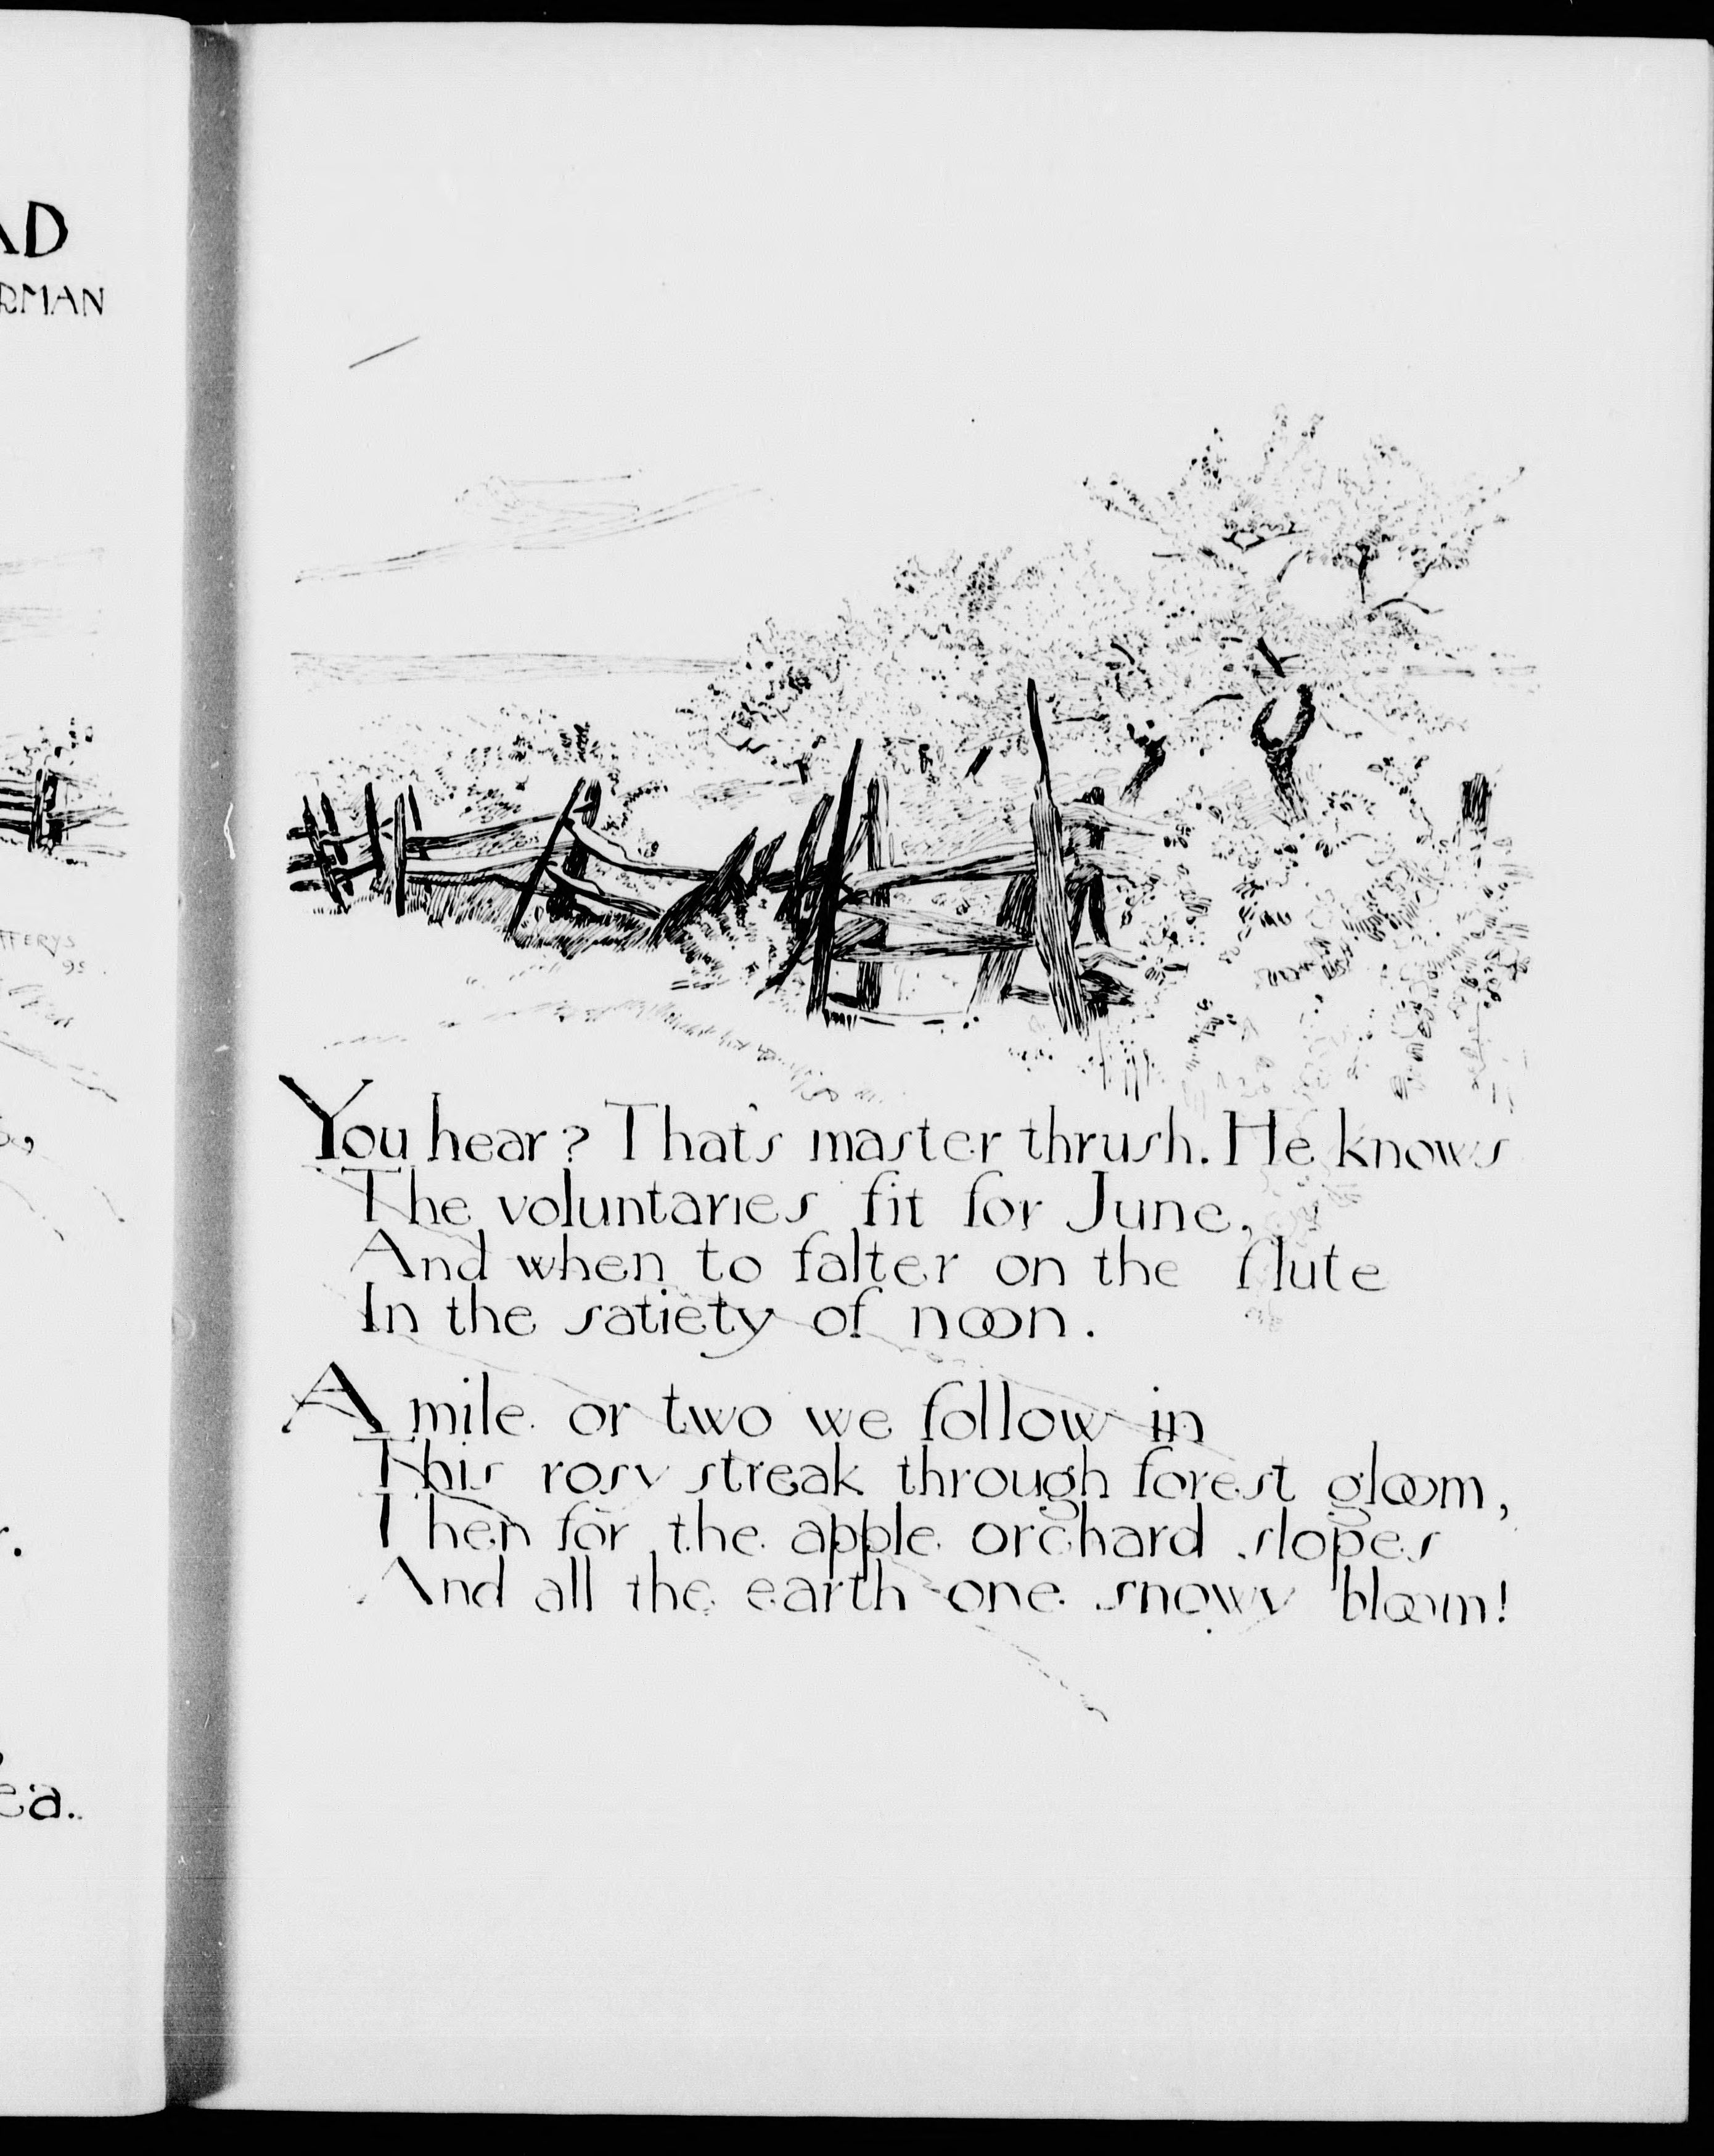 AD
RMAN
FFERYS
95.
r.
ea.
You hear? That's master thrush. He knows
The voluntaries fit for June,
And when to falter on the flute
In the satiety of noon.
A mile or two we follow in
This rosy streak through forest gloom,
Then for the apple orchard slopes
And all the earth one snowy bloom!